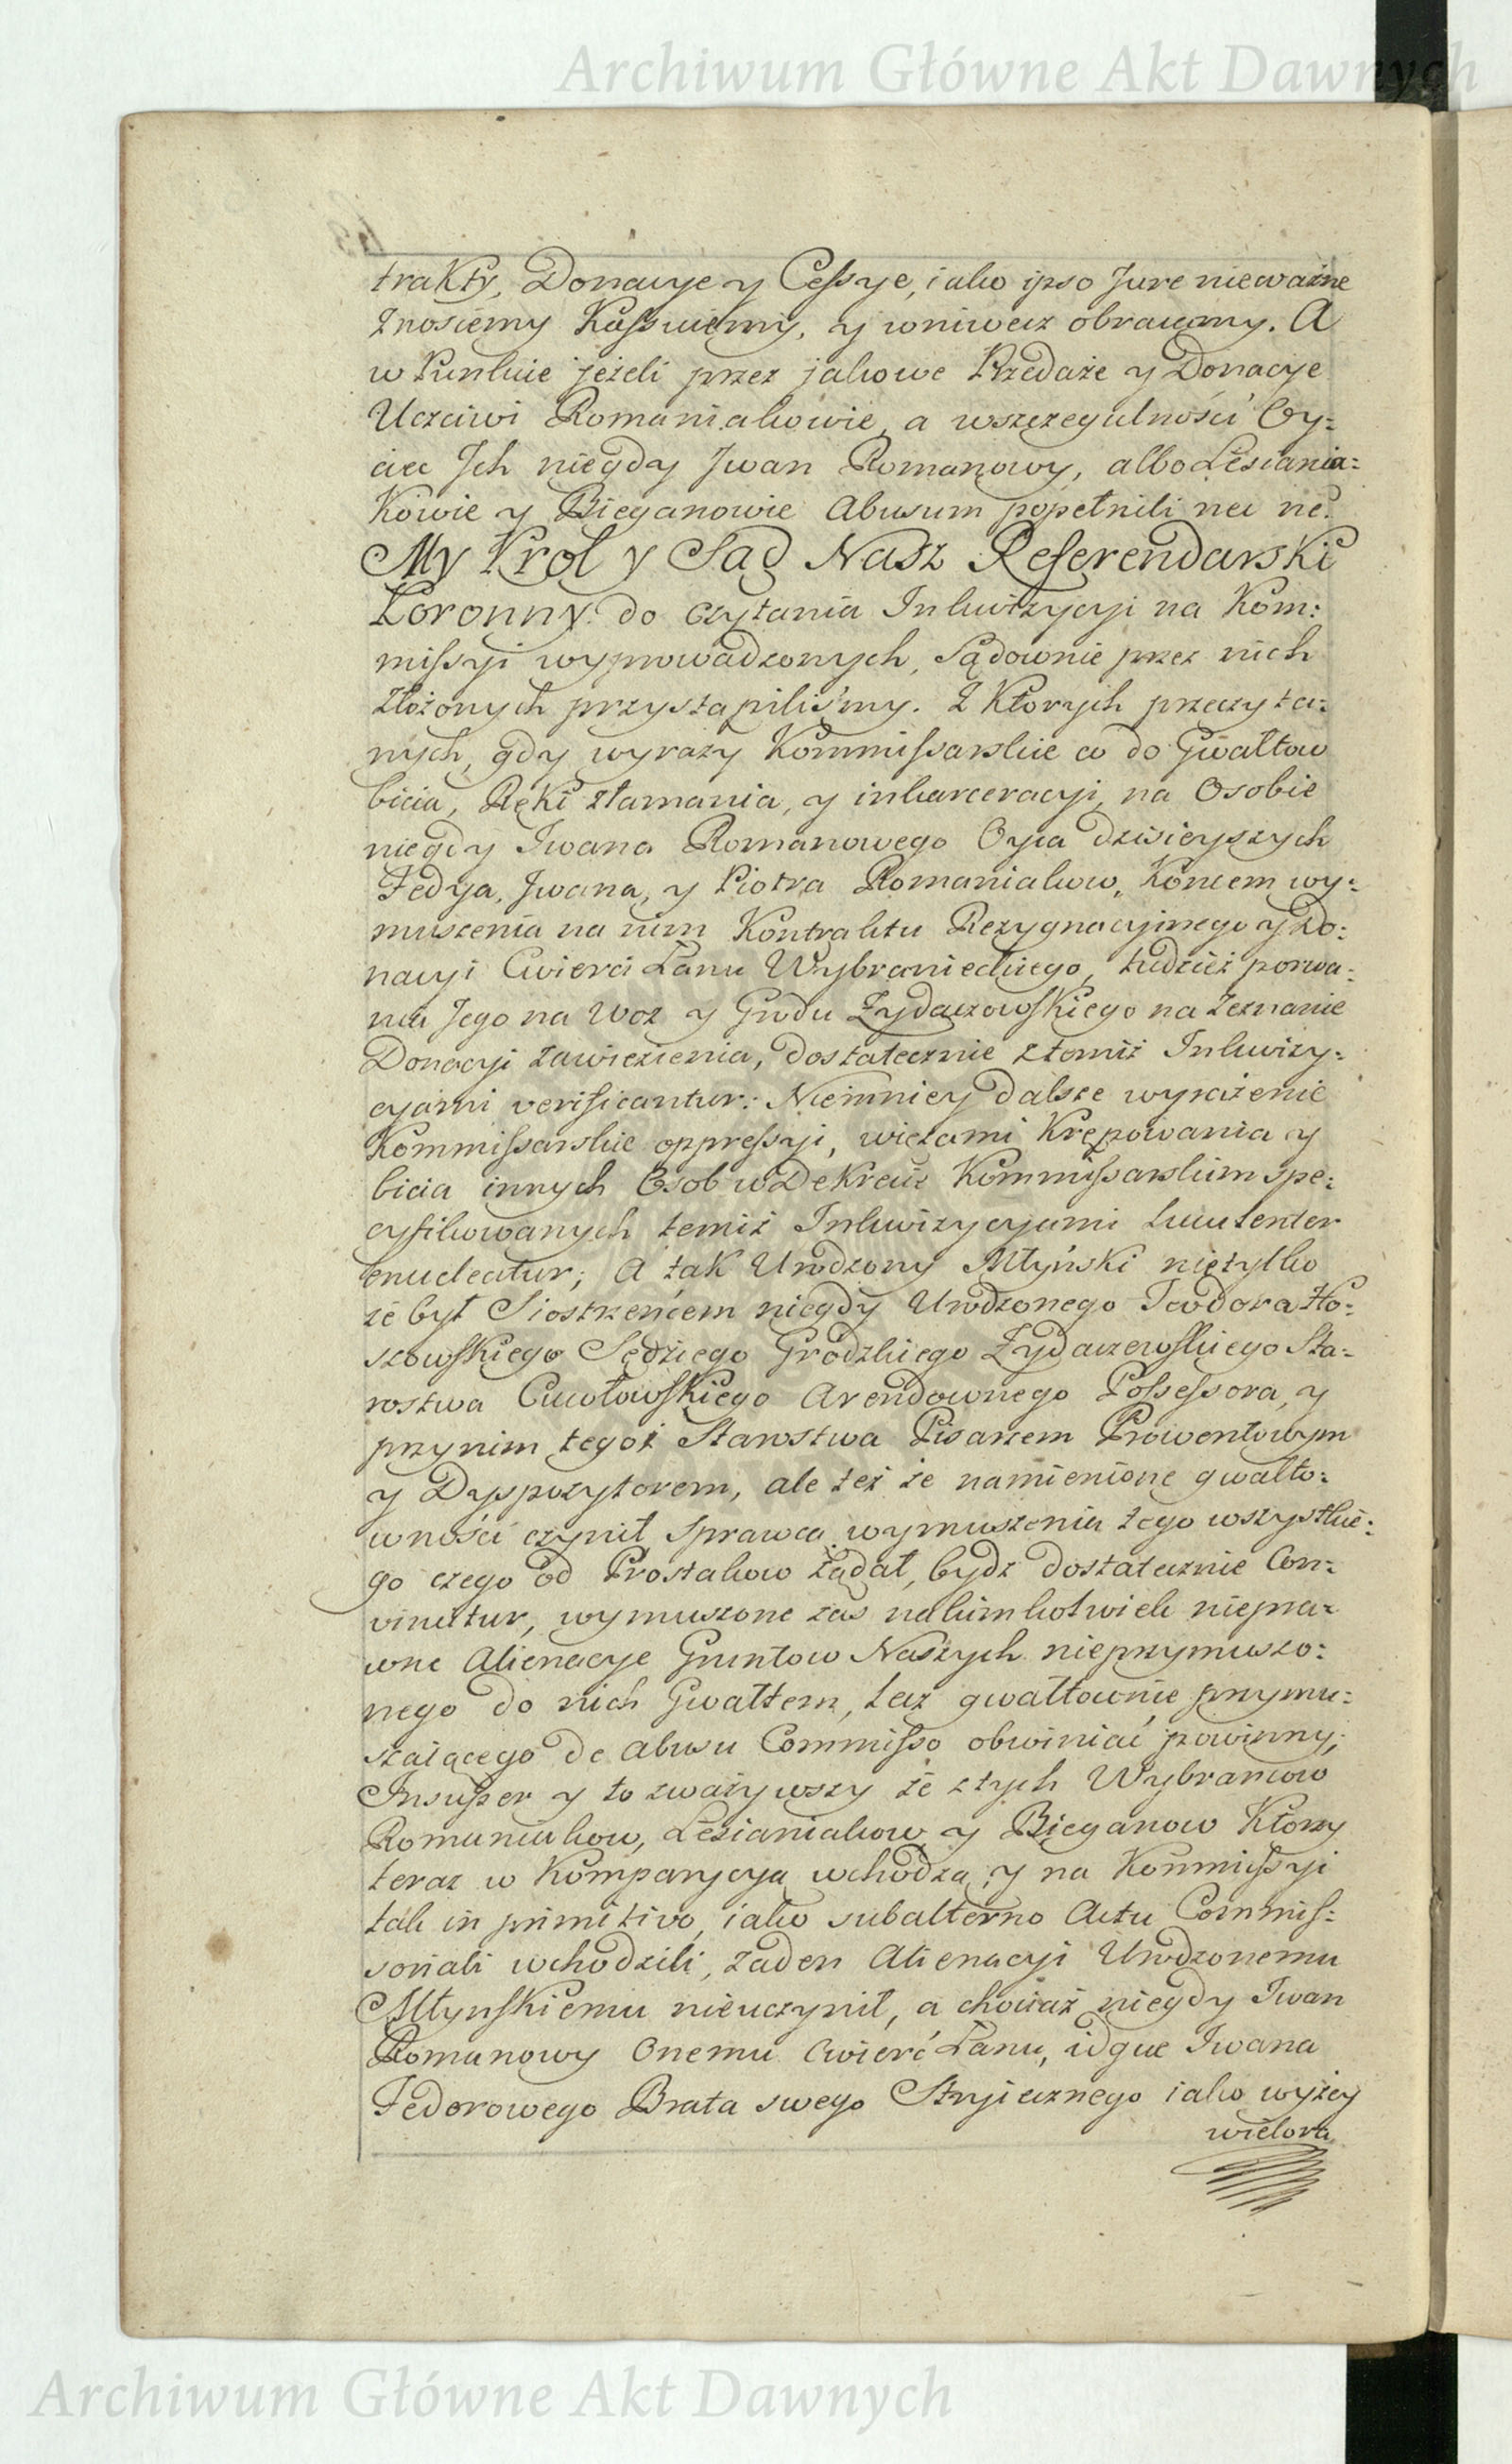 Archiwum Główne Akt Dawnych
trakty, Donacye y Cessye, iako ipso Jure nieważne
znosiemy Kassuiemy, y wniwecz obracamy. A
w Punkcie jeżeli przez jakowe Przedaże y Donacye
Uczciwi Romaniakowie, a wszczegulności Oy-
ciec Jch niegdy Jwan Romanowy, albo Lesiania-
kowie y Bieganowie Abusum popełnili nec ne.
My Krol y Sąd Nasz Referendarski
Koronny do czytania Inkwizycyi na Kom-
missyi wyprowadzonych, Sądownie przez nich
złożonych przystąpiliśmy. Z Których przeczyta-
nych, gdy wyrazy Kommissarskie co do Gwałtow
bicia, Ręki złamania, y inkarceracyi, na Osobie
niegdy Iwana Romanowego Oyca dzisieyszych
Fedya, Jwana, y Piotra Romaniakow, Koncem wy-
muszenia na nim Kontraktu Rezygnacyinego y Do-
nacyi Cwierci Łanu Wybranieckiego, tudzież porwa-
nia Jego na Woz y Grodu Zydaczowskiego na zeznanie
Donacyi zawiezienia, dostatecznie z temiż Inkwizy-
cyami verificantur: Niemniey dalsze wyrażenie
Kommissarskie oppressyi, więzami Krępowania y
bicia innych Osob w Dekrecie Kommissarskim spe-
cyfikowanych temiż Inkwizycyami luculenter
enucleatur; A tak Urodzony Młyński nietylko
że był Siostrzeńcem niegdy Urodzonego Teodora Ho-
szowskiego Sędziego Grodzkiego Zydaczewskiego Sta-
rostwa Cucołowskiego Arendownego Possessora, y
przynim tegoż Starostwa Pisarzem Prowentowym
y Dyspozytorem, ale też że namienione gwałto-
wności czynił Sprawcą wymuszenia tego wszystkie-
go czego od Prostakow żądał, bydz dostatecznie Con-
vincitur, wymuszone zaś na kimkolwiek niepra-
wne Alienacye Gruntow Naszych nieprzymuszo-
nego do nich Gwałtem, lecz gwałtownie przymu-
szaiącego de abusu Commisso obwiniać powinny;
Insuper y to zważywszy że z tych Wybrancow
Romaniakow, Lesianiakow y Bieganow Ktorzy
teraz w Komparycyą wchodzą, y na Kommissyi
tak in primitivo, iako subalterno Actu Commis-
soriali wchodzili, żaden Alienacyi Urodzonemu
Młynskiemu nieuczynił, a chociaż niegdy Iwan
Romanowy Onemu Cwierć Łanu, idque Iwana
Fedorowego Brata swego Stryiecznego iako wyżey
wielora
Archiwum Główne Akt Dawnych